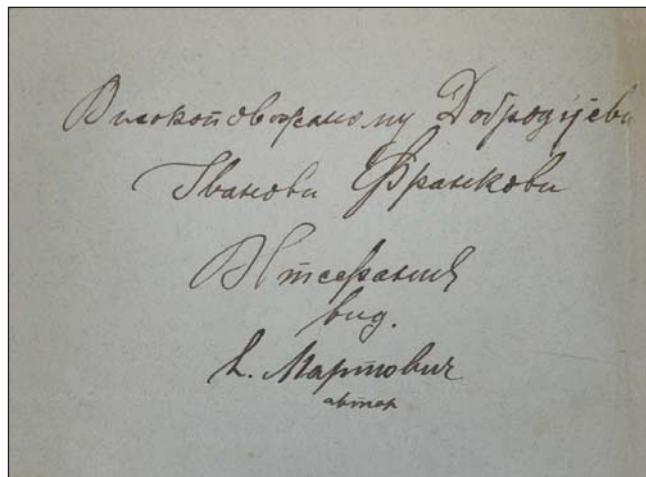 Високоповажаному Добродїєви
Іванови Франкови
вид.
Л. Мартович
автор